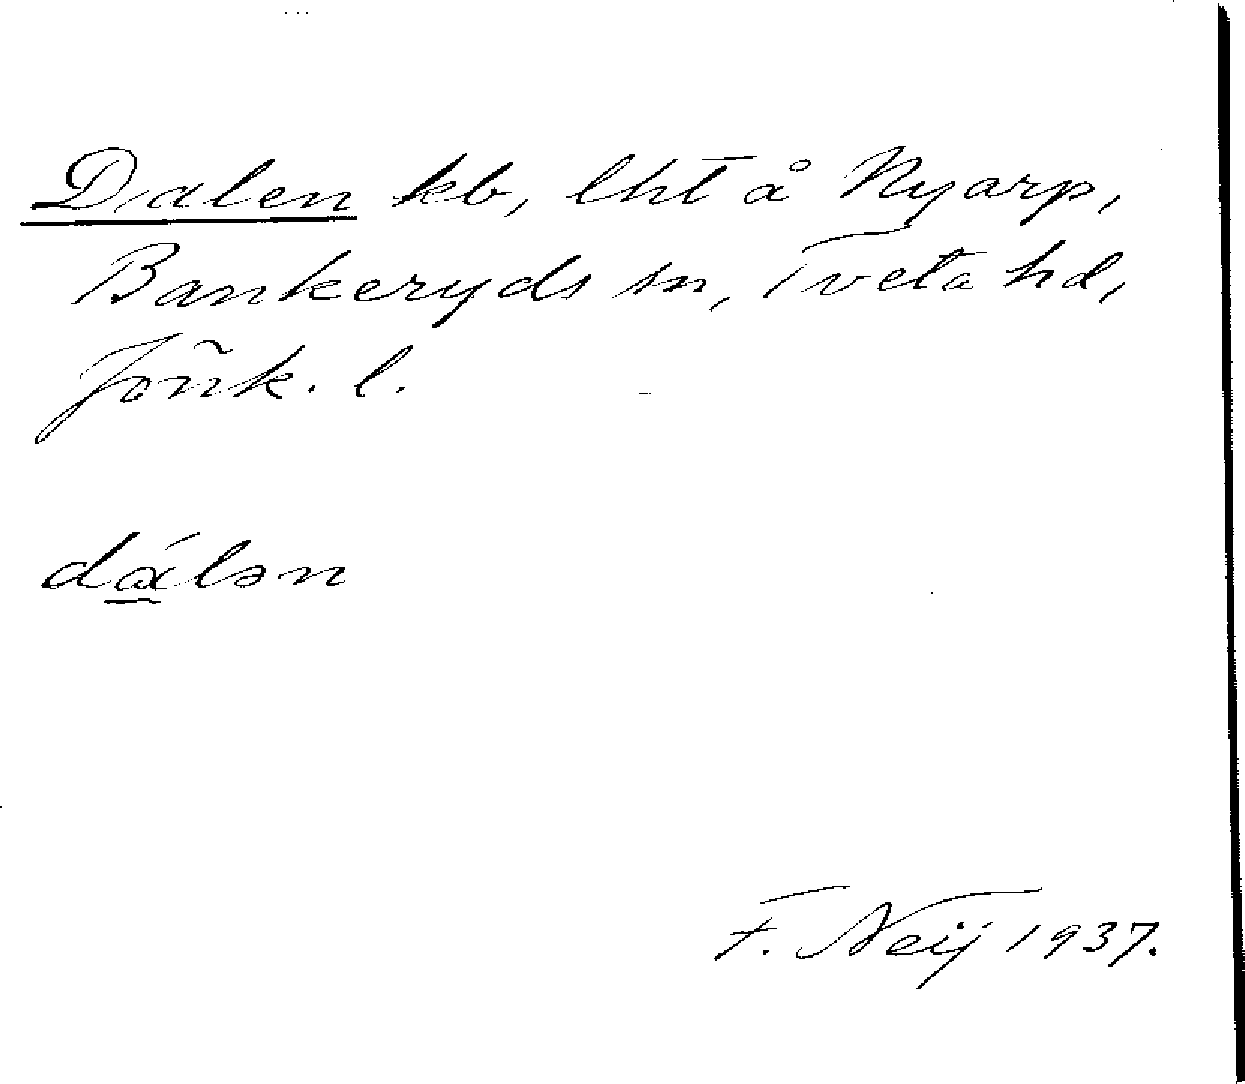 Dalen kb, lht å Nyarp,
Bankeryds sn, Tveta hd,
Jönk. l.
dɑ́lən
F. Neij 1937.